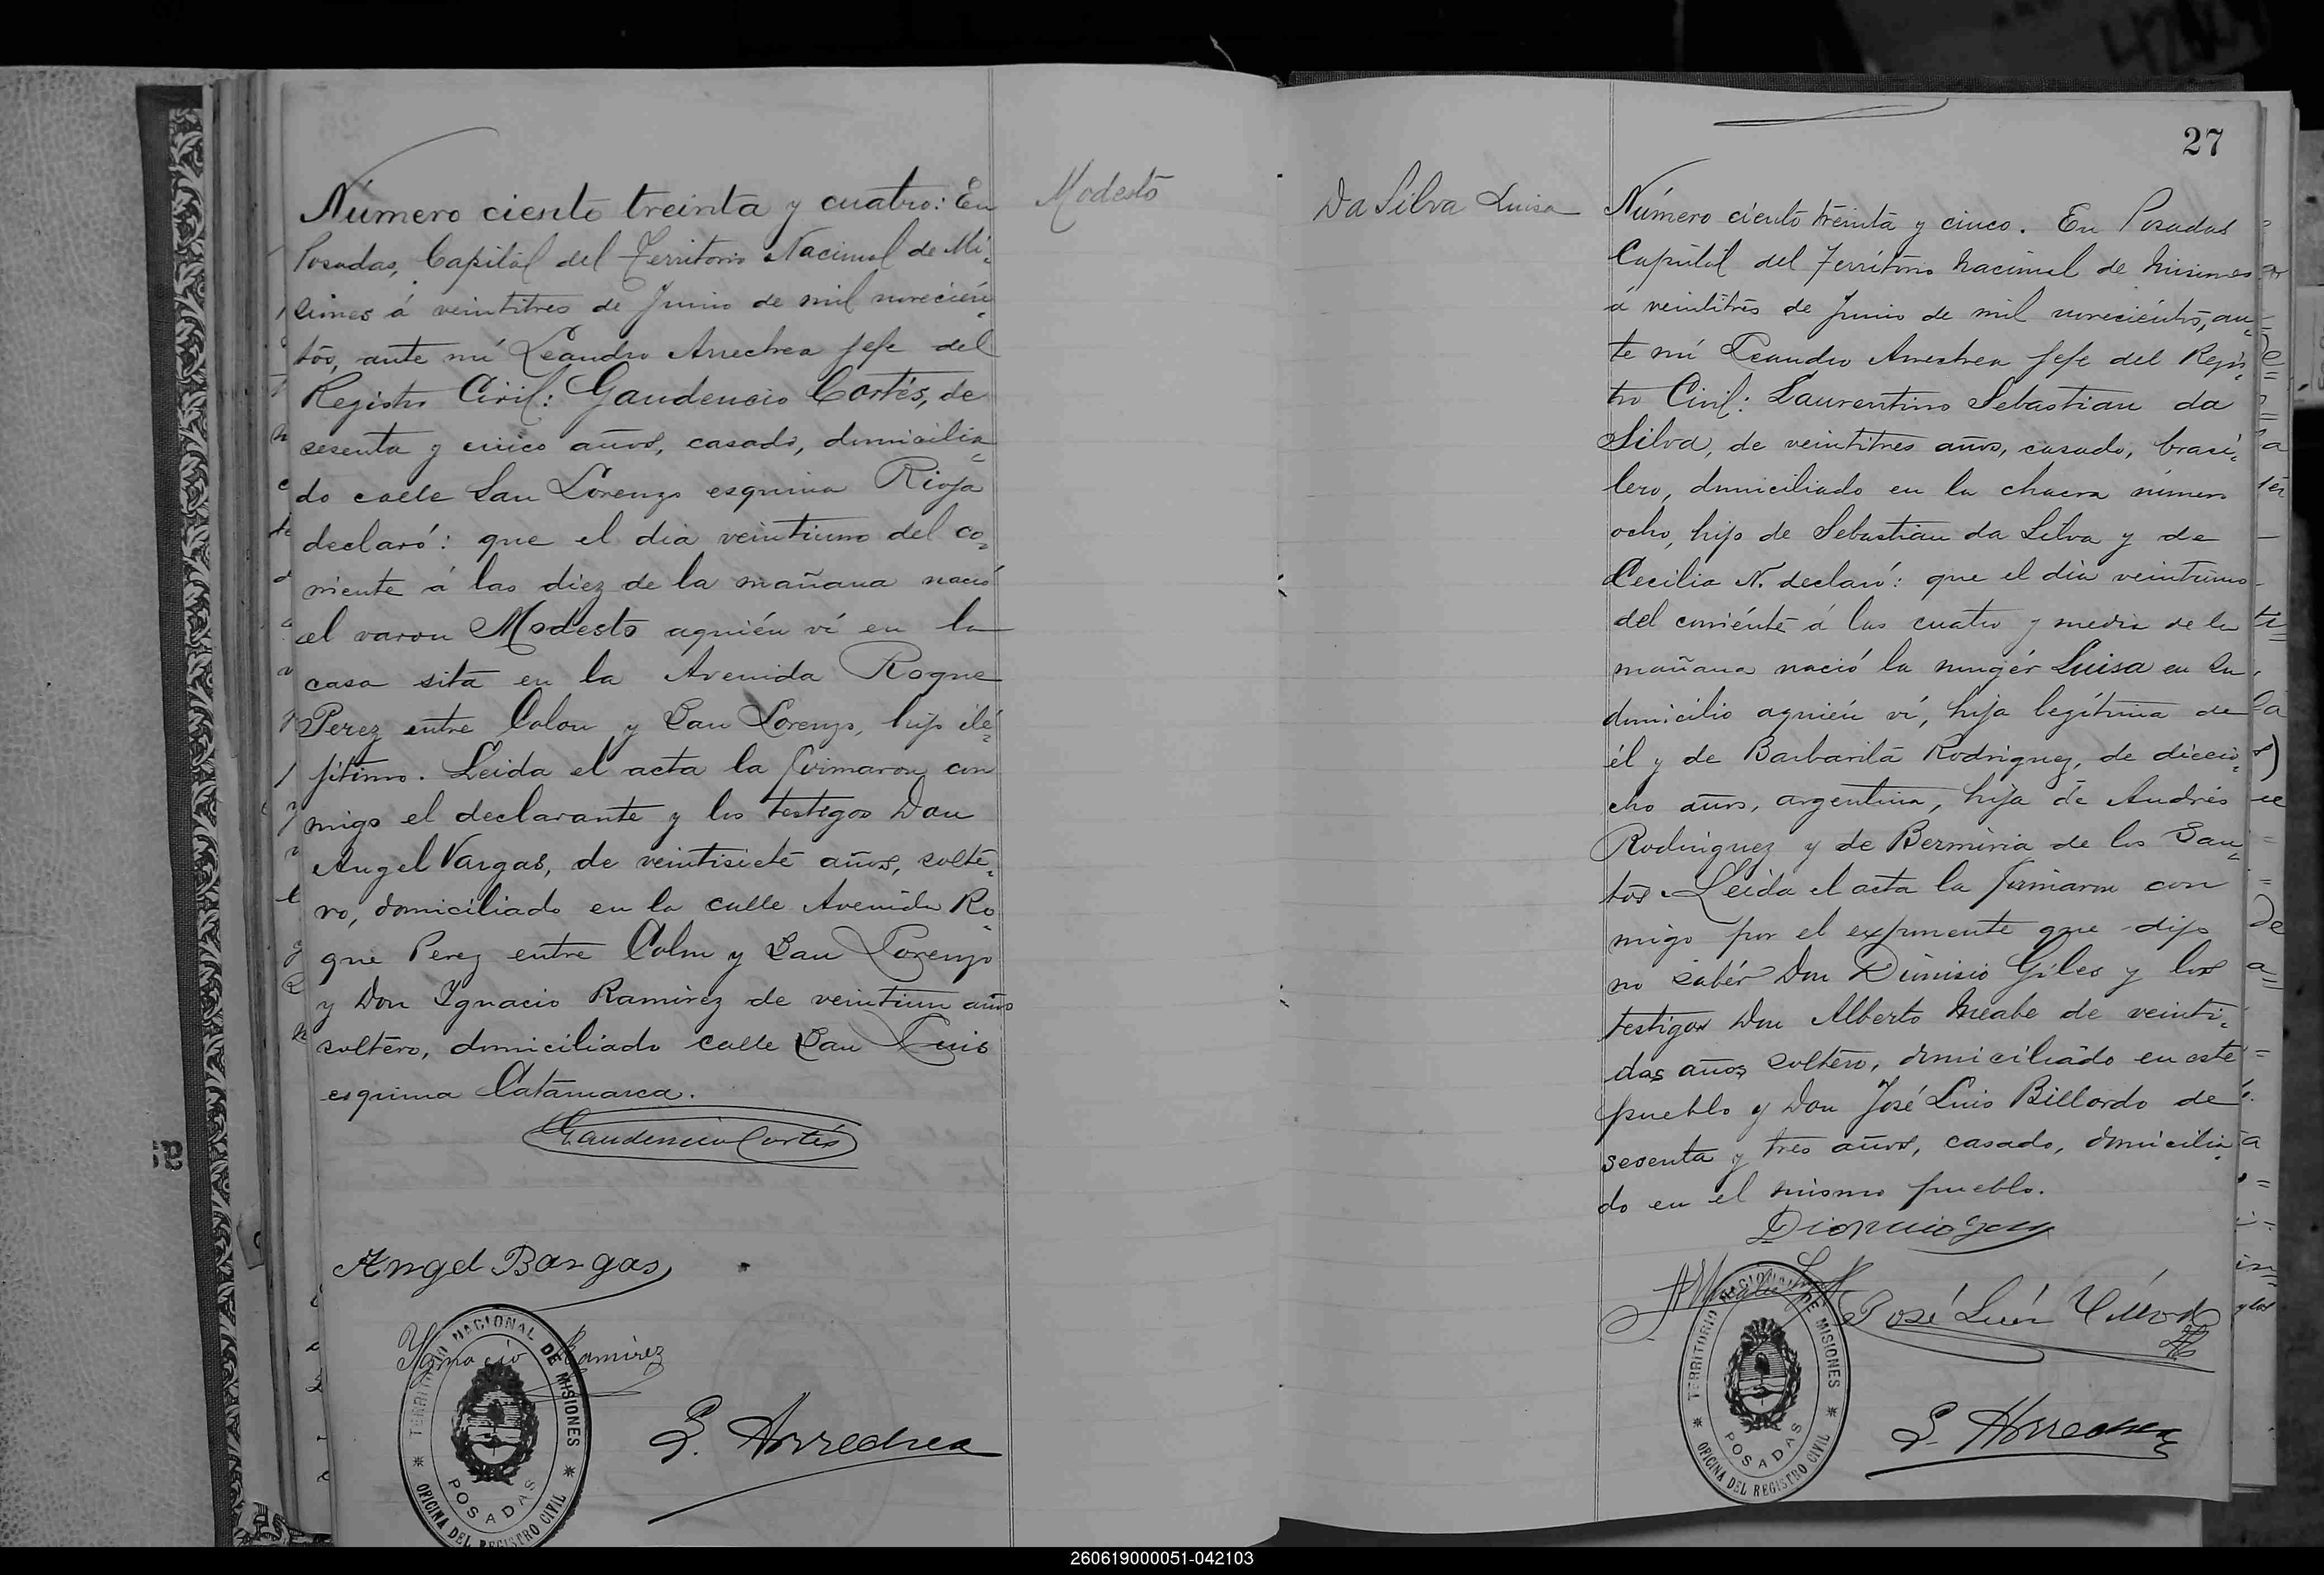 Número ciento treinta y cuatro: En
Posadas, Capital del Territorio Nacional de Mi=
siones á veintitres de Junio de mil novecien=
tos, ante mí Leandro Arrechea Jefe del
Registro Civil: Gaudencio Cortés, de
sesenta y cinco años, casado, domicilia=
do calle San Lorenzo esquina Rioja
declaró: que el dia veintiuno del co=
rriente á las diez de la mañana nació
el varon Modesto aquién ví en la
casa sita en la Avenida Roque
Perez entre Colon y San Lorenzo, hijo ile=
jítimo. Leida el acta la firmaron con
migo el declarante y los testigos Don
Angel Vargas, de veintisiete años, solte=
ro, domiciliado en la calle Avenida Ro
que Perez entre Colon y San Lorenzo
y Don Ignacio Ramirez de veintiun años
soltero, domiciliado calle San Luis
esquina Catamarca.
Gaudencio Cortés
Angel Bargas
Ygnacio Ramirez
L. Arrechea
TERRITORIO NACIONAL DE MISIONES
POSADAS
OFICINA DEL REGISTRO CIVIL
Modesto
27
Da Silva Luisa
Número ciento treinta y cinco. En Posadas
Capital del Territorio Nacional de Misiones
á veintitrés de Junio de mil novecientos, an=
te mí Leandro Arrechea Jefe del Regis=
tro Civil: Laurentino Sebastian da
Silva, de veintitres años, casado, brasi=
lero, domiciliado en la chacra número
ocho, hijo de Sebastian da Silva y de
Cecilia N. declaró: que el dia veintiuno
del corriente á las cuatro y media de la
mañana nació la mugér Luisa en su
domicilio aquién ví, hija legítima de
él y de Barbarita Rodriguez, de diecio=
cho años, argentina, hija de Andrés
Rodriguez y de Bermiria de los San=
tos. Leida el acta la firmaron con
migo por el exponente que dijo
no sabér Don Dionisio Giles y los
testigos Don Alberto Meabe de veinti=
dos años soltero, domiciliado en este
pueblo y Don José Luis Billordo de
sesenta y tres años, casado, domicilia
do en el mismo pueblo.
José Luis Villordo
L. Arrechea
TERRITORIO NACIONAL DE MISIONES
POSADAS
OFICINA DEL REGISTRO CIVIL
260619000051-042103